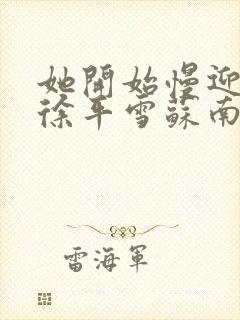 她開始慢迎
徐年雪蘇南
雷海軍